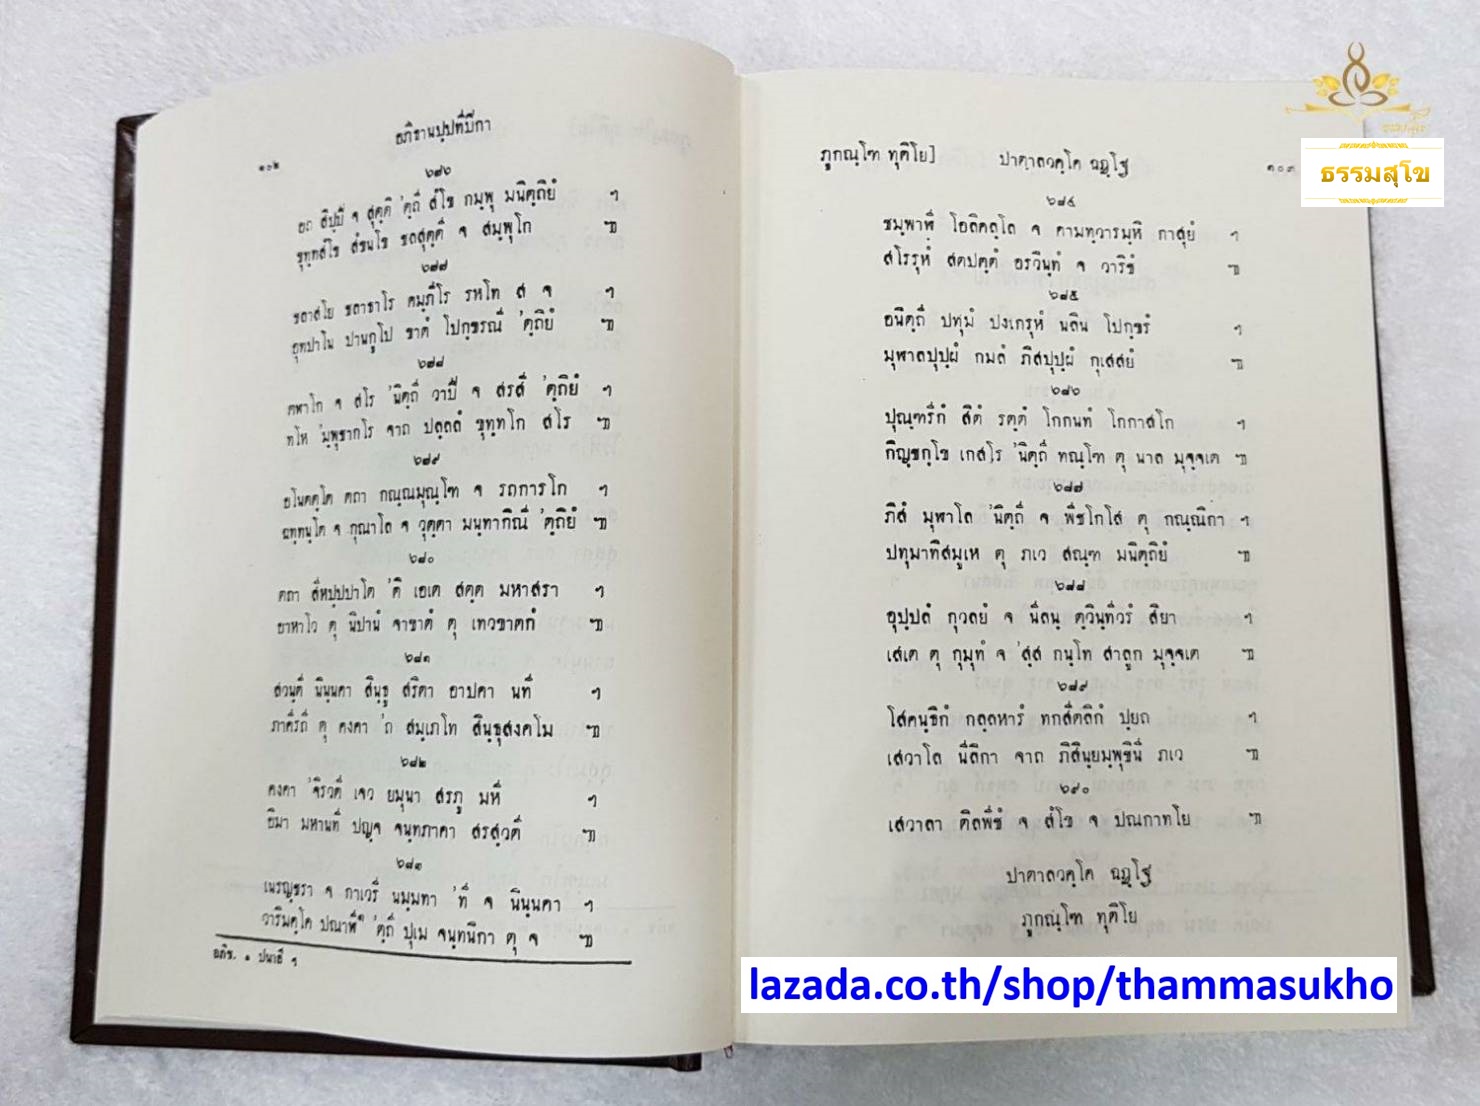 ๑๐๒
อภิธานปฺปทีปิกา
๖๗๖
อถ สิปฺปี จ สุตฺติ 'ตฺถี สํโข กมฺพุ มนิตฺถิยํ ฯ
ขุทฺทสํโข สํขนโข ชลสุตฺติ จ สมฺพุโก ๚
๖๗๗
ชลาสโย ชลาธาโร คมฺภีโร รหโท ส จ ฯ
อุทปาโน ปานกูโป ขาตํ โปกฺขรณี 'ตฺถิยํ ๚
๖๗๘
ตฬาโก จ สโร 'นิตฺถี วาปี จ สรสี 'ตฺถิยํ ฯ
ทโห 'มฺพุชากโร จาถ ปลฺลลํ ขุทฺทโก สโร ๚
๖๗๙
อโนตตฺโต ตถา กณฺณมุณฺโฑ จ รถการโก ฯ
ฉทฺทนฺโต จ กุณาโล จ วุตฺตา มนฺทากินี 'ตฺถิยํ ๚
๖๘๐
ตถา สีหปฺปปาโต 'ติ เอเต สตฺต มหาสรา ฯ
อาหาโว ตุ นิปานํ จาขาตํ ตุ เทวขาตกํ ๚
๖๘๑
สวนฺตี นินฺนคา สินฺธุ สริตา อาปคา นที ฯ
ภาคีรถี ตุ คงคา 'ถ สมฺเภโท สินฺธุสงคโม ๚
๖๘๒
คงคา 'จิรวตี เจว ยมุนา สรภู มหี ฯ
อิมา มหานที ปญฺจ จนฺทภาคา สรสฺวตี ๚
๖๘๓
เนรญฺชรา จ กาเวรี นมฺมทา 'ที จ นินฺนคา ฯ
วาริมคฺโค ปณาฬี๑ 'ตฺถี ปุเม จนฺทนิกา ตุ จ ๚
อภิข. ๑ ปนาฬี ฯ
ภูกณฺโฑ ทุติโย]
ปาตาลวคฺโค ฉฏฺโฐ
๑๐๓
๖๘๔
ชมฺพาฬี โอลิคลฺโล จ คามทฺวารมฺหิ กาสุยํ ฯ
สโรรุหํ สตปตฺตํ อรวินฺทํ จ วาริชํ ๚
๖๘๕
อนิตฺถี ปทุมํ ปงเกรุหํ นลิน โปกฺขรํ ฯ
มุฬาลปุปฺผํ กมลํ ภิสปุปฺผํ กุเสสยํ ๚
๖๘๖
ปุณฺฑรีกํ สิตํ รตฺตํ โกกนทํ โกกาสโก ฯ
กิญฺชกฺโข เกสโร 'นิตฺถี ทณฺโฑ ตุ นาล มุจฺจเต ๚
๖๘๗
ภิสํ มุฬาโล 'นิตฺถี จ พีชโกโส ตุ กณฺณิกา ฯ
ปทุมาทิสมูเห ตุ ภเว สณฺฑ มนิตฺถิยํ ๚
๖๘๘
อุปฺปลํ กุวลยํ จ นีลนฺ ตฺวินฺทีวรํ สิยา ฯ
เสเต ตุ กุมุทํ จ 'สฺส กนฺโท สาลูก มุจฺจเต ๚
๖๘๙
โสคนฺธิกํ กลฺลหารํ ทกสีตลิกํ ปฺยถ ฯ
เสวาโล นีลิกา จาถ ภิสินฺยมฺพุชินี ภเว ๚
๖๙๐
เสวาลา ติลพีชํ จ สํโข จ ปณกาทโย ๚
ปาตาลวคฺโค ฉฏฺโฐ
ภูกณฺโฑ ทุติโย
ธรรมสุโข
lazada.co.th/shop/thammasukho